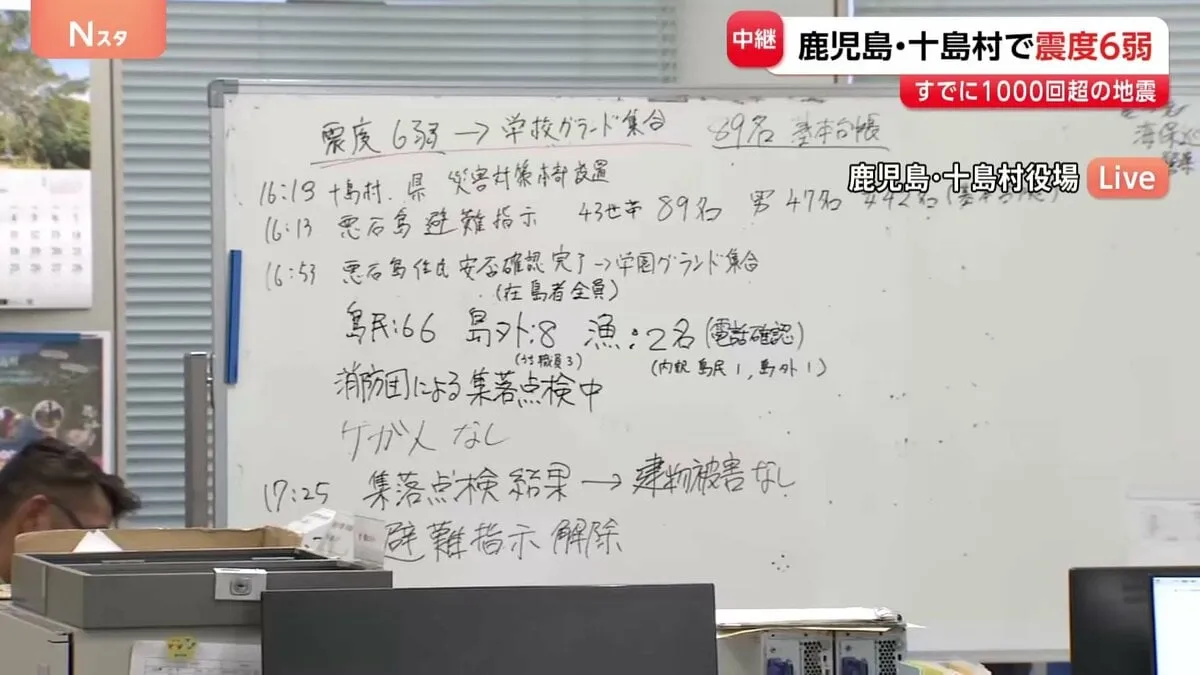 Nスタ
中継
鹿児島・十島村で震度6弱
すでに1000回超の地震
鹿児島・十島村役場
Live
震度6弱→学校グランド集合 89名 基本台帳
海保
16:19 十島村、県 災害対策本部設置
16:13 悪石島避難指示 43世帯 89名 男47名 女42名
16:53 悪石島住民安否確認完了→学園グランド集合
(在島者全員)
島民:66 島外:8 漁:2名(電話確認)
(内訳 島民1,島外1)
消防団による集落点検中
ケガ人なし
17:25 集落点検結果→建物被害なし
避難指示解除